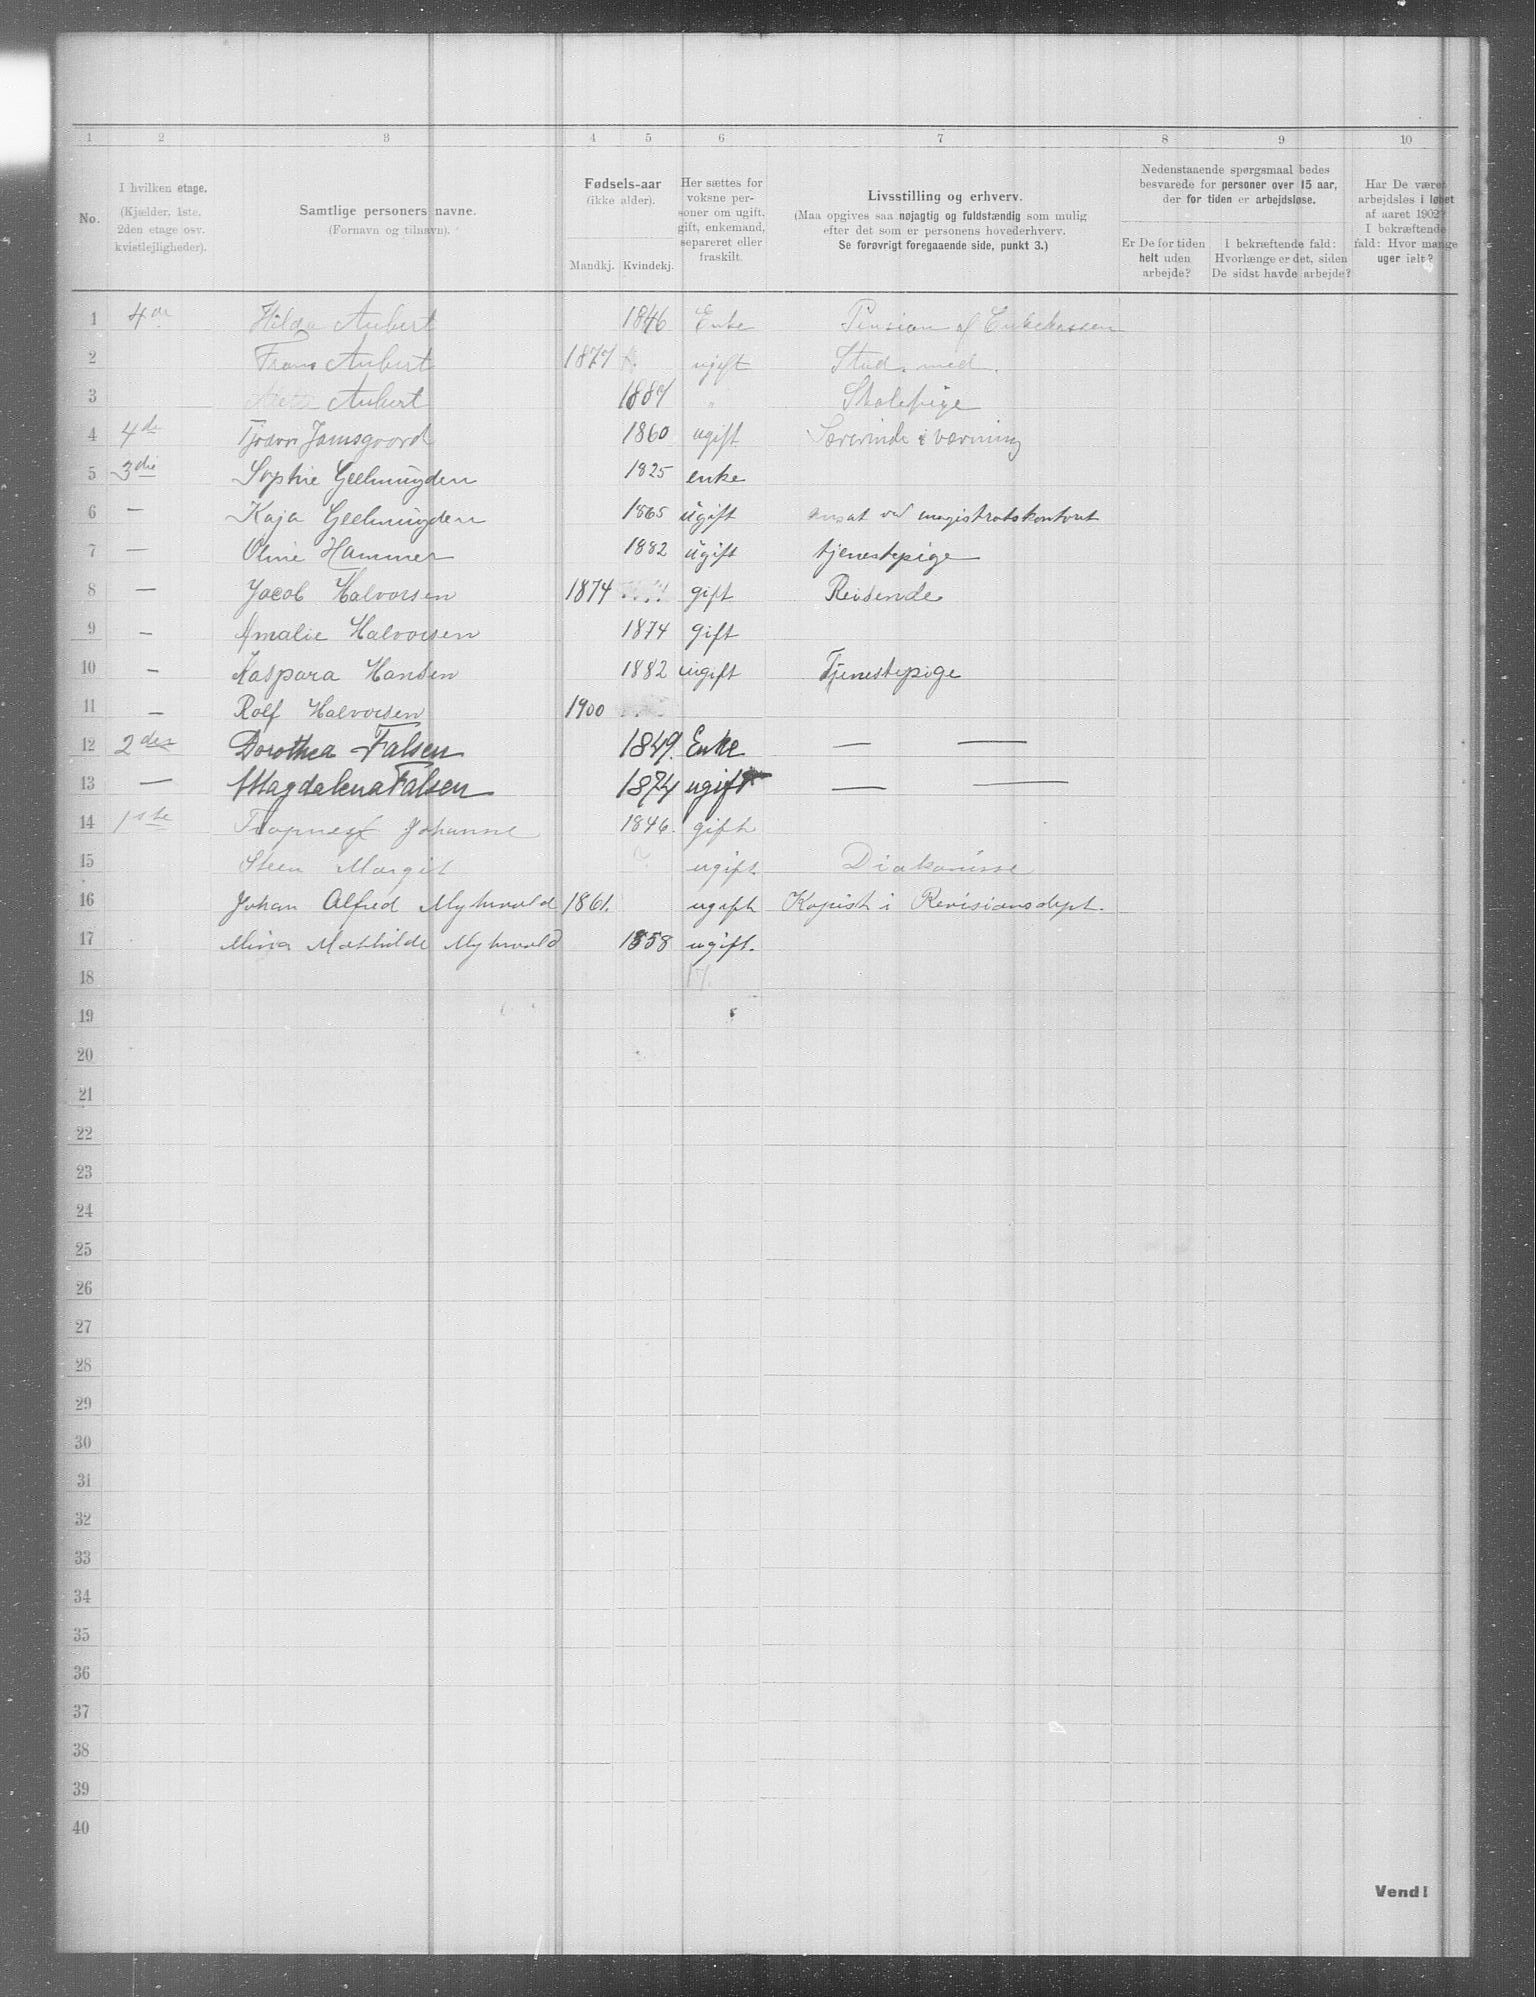 1 2 3 4 5 6 7 8 9 10
No.
I hvilken etage.
(Kjælder, 1ste,
2den etage osv.
kvistlejligheder).
Samtlige personers navne.
(Fornavn og tilnavn).
Fødsels-aar
(ikke alder).
Mandkj. Kvindekj.
Her sættes for
voksne per-
soner om ugift,
gift, enkemand,
separeret eller
fraskilt.
Livsstilling og erhverv.
(Maa opgives saa nøjagtig og fuldstændig som mulig
efter det som er personens hovederhverv.
Se forøvrigt foregaaende side, punkt 3.)
Nedenstaaende spørgsmaal bedes
besvarede for personer over 15 aar,
der for tiden er arbejdsløse.
Er De for tiden
helt uden
arbejde?
I bekræftende fald:
Hvorlænge er det, siden
De sidst havde arbejde?
Har De været
arbejdsløs i løbet
af aaret 1902?
I bekræftende
fald: Hvor mange
uger ialt?
1 4de Hilda Aubert 1846 Enke Pension af Enkekassen
2 Frans Aubert 1877 ugift Stud. med.
3 Aubert 1887 " Skolepige
4 4de 1860 ugift Lærerinde
5 3die Sophie Geelmuyden 1825 enke
6 — Kaja Geelmuyden 1865 ugift ansat ved magistratskontoret
7 — Oline Hammer 1882 ugift tjenestepige
8 — Jacob Halvorsen 1874 gift Reisende
9 — Amalie Halvorsen 1874 gift
10 — Kaspara Hansen 1882 ugift Tjenestepige
11 — Rolf Halvorsen 1900
12 2den Dorothea Falsen 1849. Enke — —
13 — Magdalena Falsen 1874 ugift — —
14 1ste Johanne 1846. gift
15 Steen Margit ? ugift Diakonisse
16 Johan Alfred Myhrvold 1861. ugift Kopist i Revisionsdept.
17 Mina Mathilde Myhrvold 1858 ugift.
18 17.
19
20
21
22
23
24
25
26
27
28
29
30
31
32
33
34
35
36
37
38
39
40
Vend!